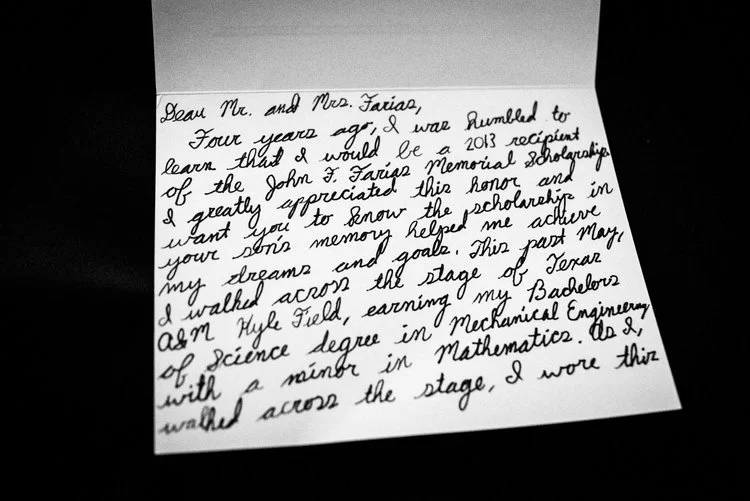 Dear Mr. and Mrs. Farias,
Four years ago, I was humbled to
learn that I would be a 2013 recipient
of the John F. Farias Memorial Scholarship.
I greatly appreciated this honor and
want you to know the scholarship in
your son's memory helped me achieve
my dreams and goals. This past May,
I walked across the stage of Texas
A&M Kyle Field, earning my Bachelors
of Science degree in Mechanical Engineering
with a minor in Mathematics. As I,
walked across the stage, I wore this